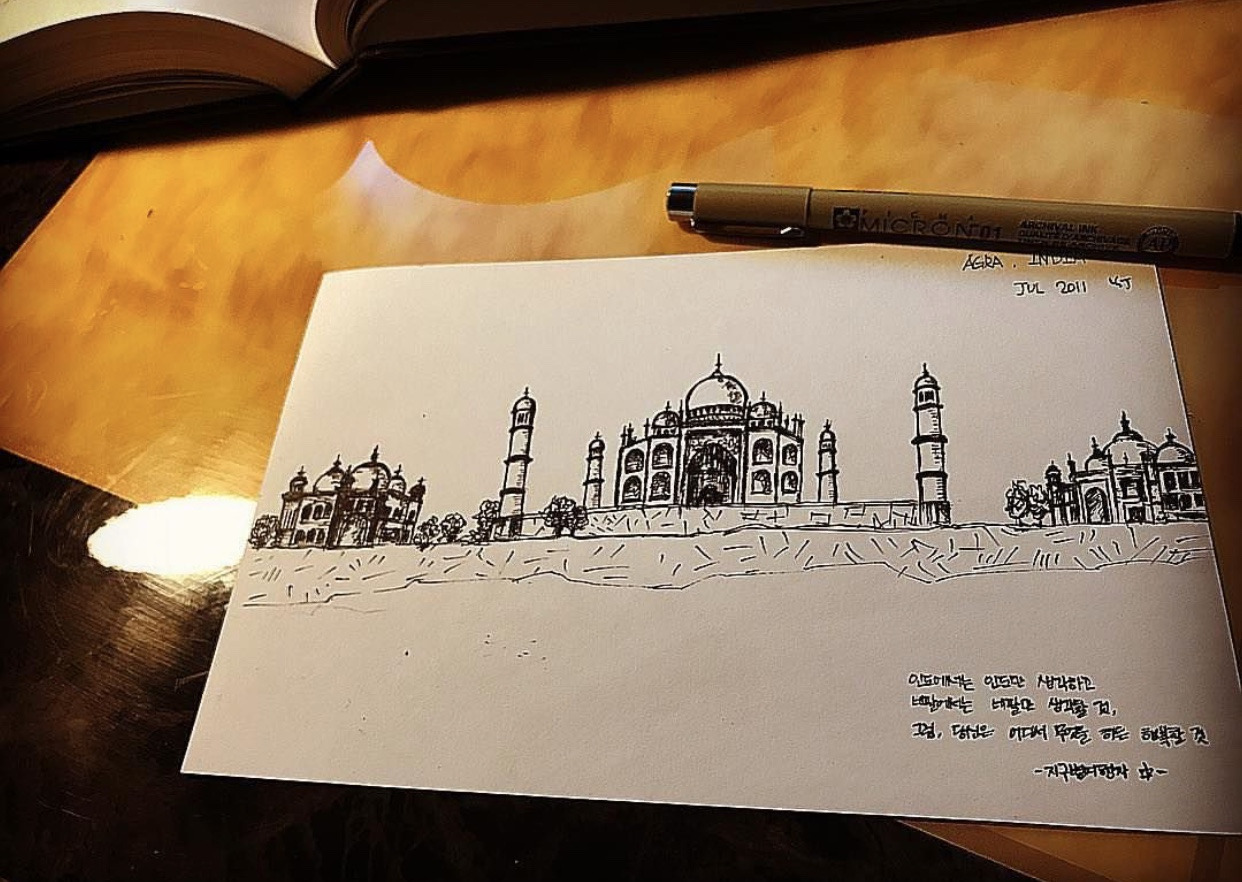 PIGMA
MICRON 01
ARCHIVAL INK
AGRA. INDIA
JUL 2011
인도에서는 인도만 생각하고
네팔에서는 네팔만 생각할 것,
그럼, 당신은 어디서 무엇을 하든 행복할 것
-지구별여행자 中-